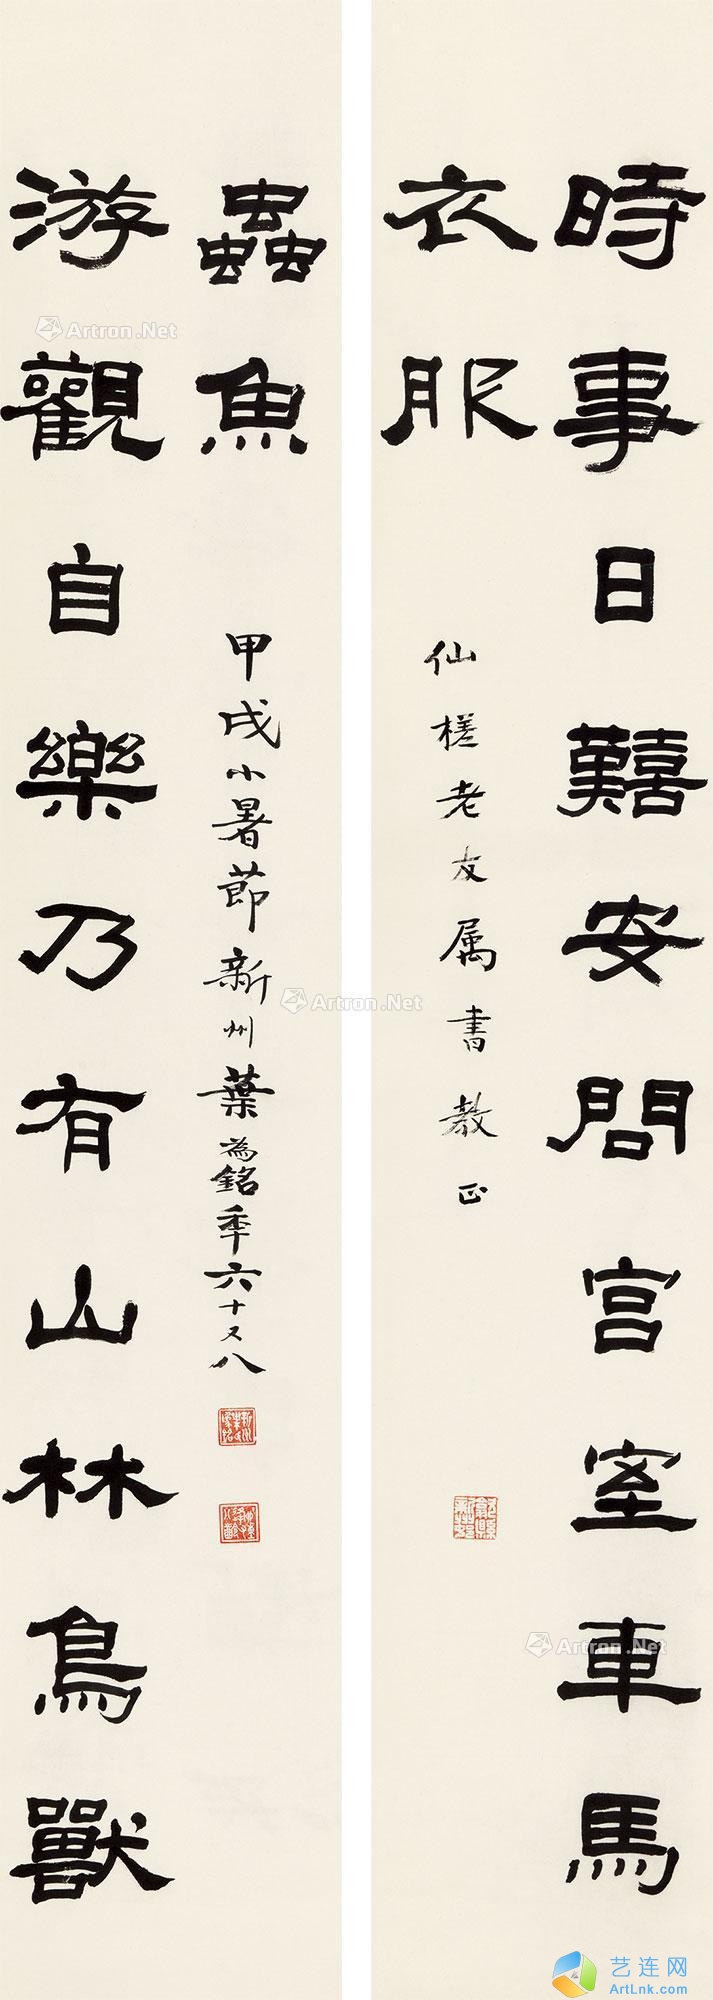 時事日囏安問宮室車馬
衣服
仙槎老友属書教正
游觀自樂乃有山林鳥獸
蟲魚
甲戌小暑節新州葉為銘年六十又八
Artron.Net
Artron.Net
Artron.Net
艺连网
ArtLnk.com